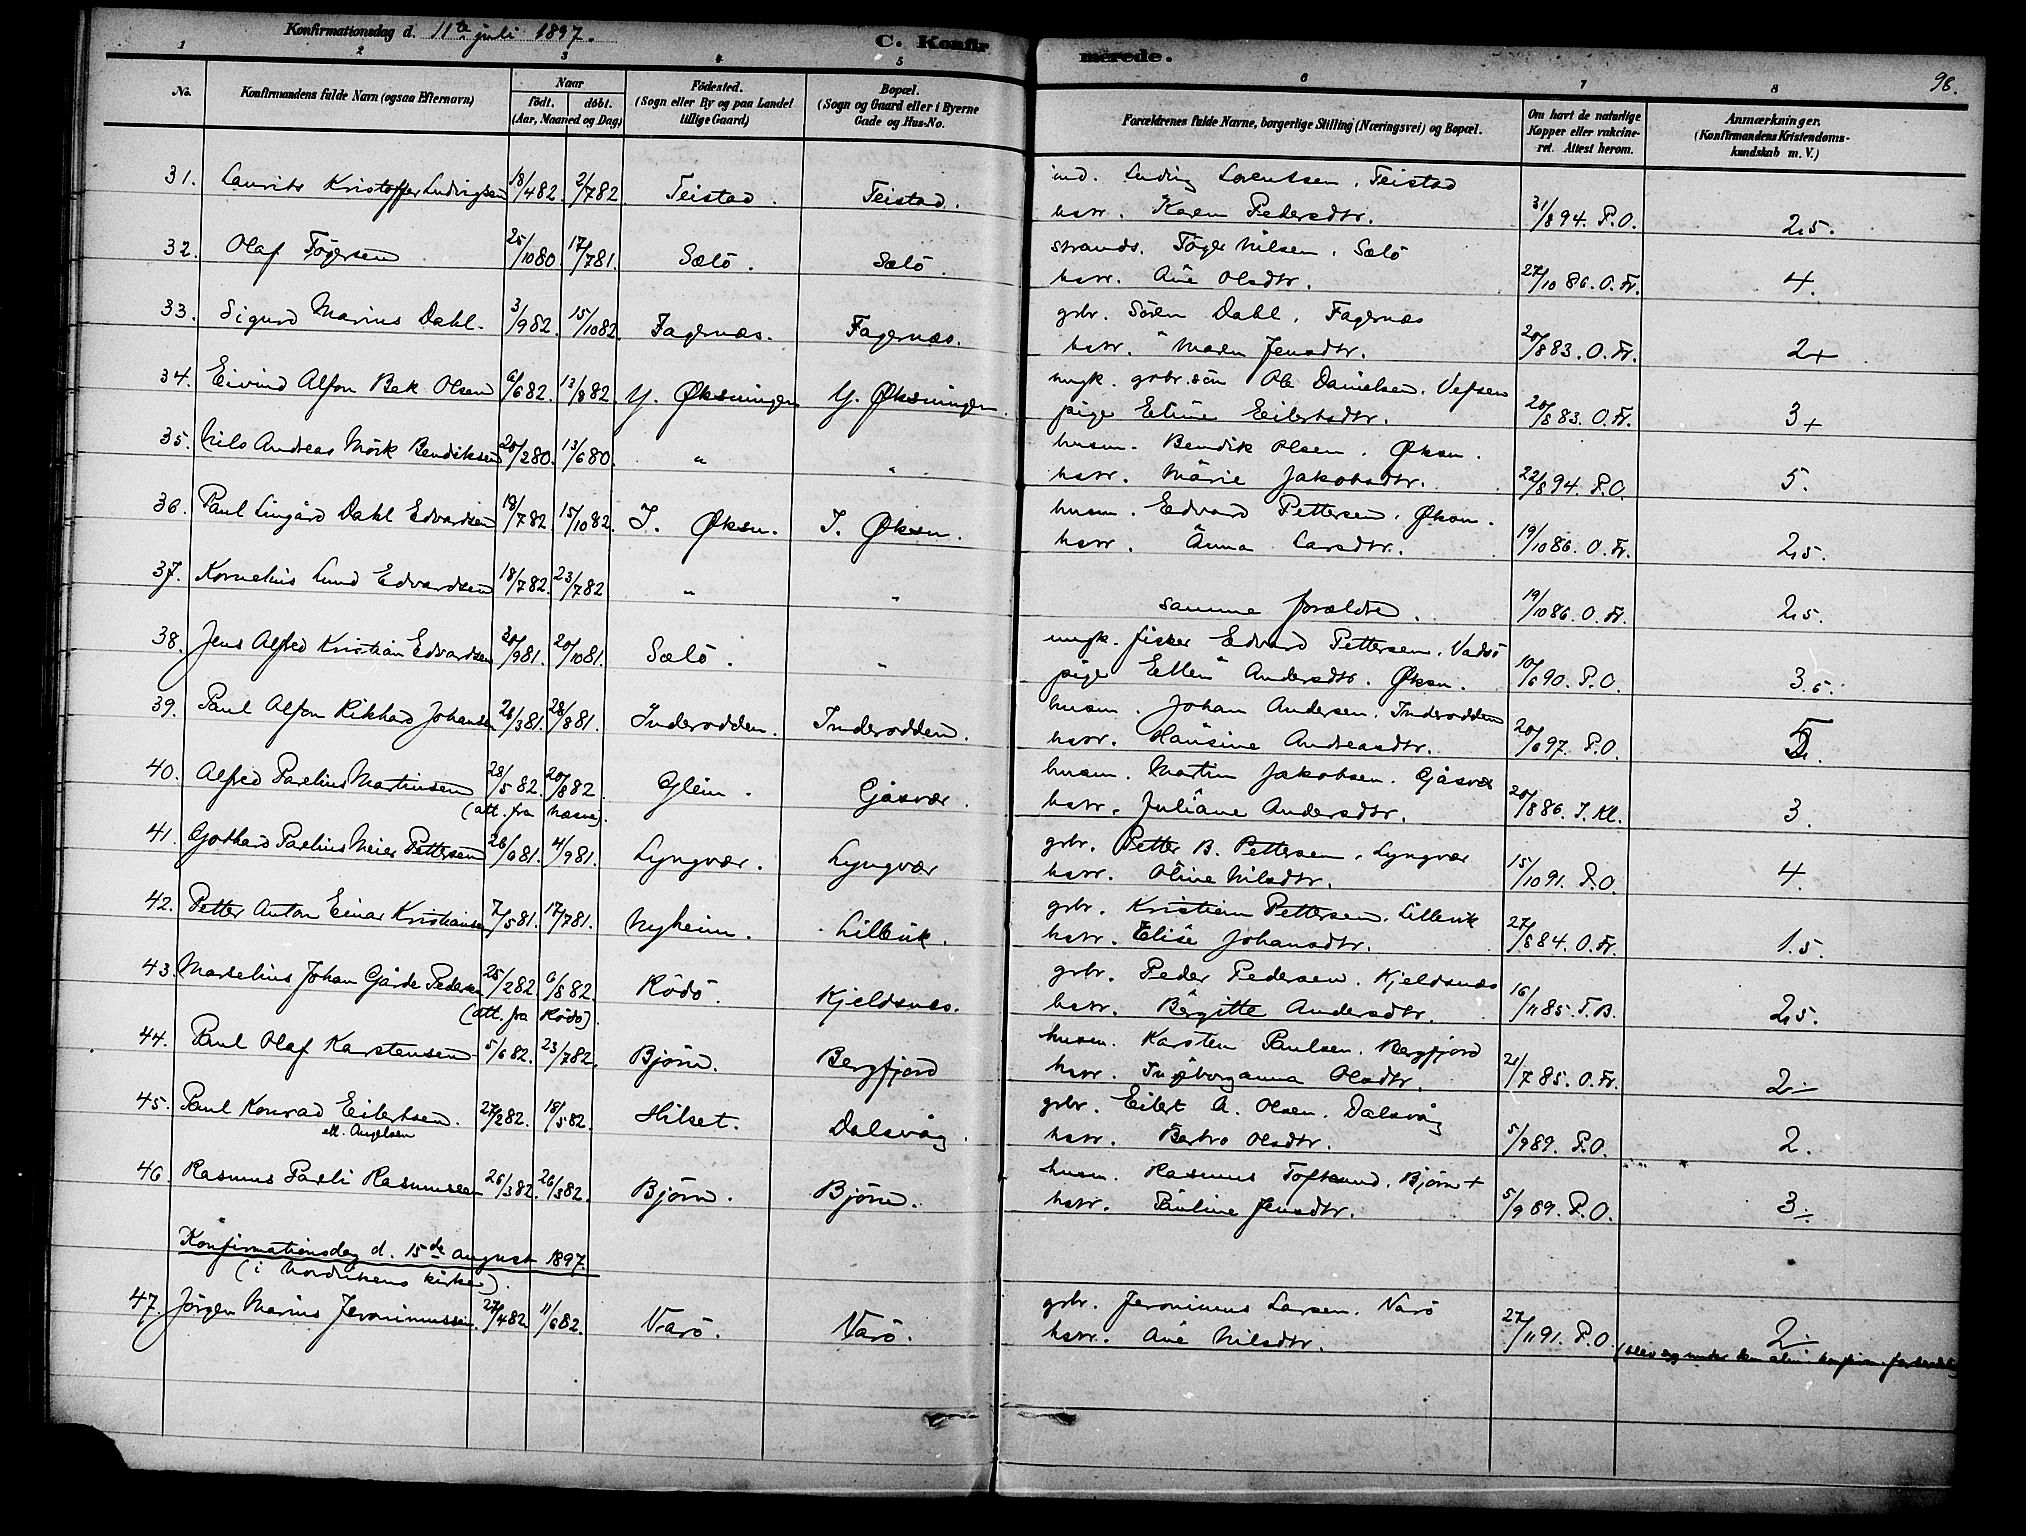 Konfirmationsdag d. 11te juli 1897.
C. Konfirmerede.
98.
1 2 3 4 5 6 7 8
No.
Konfirmandens fulde Navn (ogsaa Efternavn)
Naar
født. døbt.
(Aar, Maaned og Dag)
Fødested.
(Sogn eller By og paa Landet
tillige Gaard)
Bopæl.
(Sogn og Gaard eller i Byerne
Gade og Hus-No.
Forældrenes fulde Navne, borgerlige Stilling (Næringsvei) og Bopæl.
Om havt de naturlige
Kopper eller vakcine-
ret. Attest herom.
Anmærkninger.
(Konfirmandens Kristendoms-
kundskab m. V.)
31. Laurits Kristoffer Ludvigsen 18/4 82. 2/7 82 Teistad. Teistad. ind. Ludvig Lorentsen, Teistad
hstr. Karen Pedersdtr. 31/8 94. P.O. 2,5.
32. Olaf Tøgersen 25/10 80 17/7 81. Sælö. Sælö. strands. Töger Nilsen, Sælö
hstr. Ane Olsdtr. 27/10 86. O. Fr. 4.
33. Sigurd Marius Dahl. 3/9 82. 15/10 82. Fagernæs. Fagernæs. grbr. Sören Dahl, Fagernæs
hstr. Maren Jensdtr. 20/8 83. O. Fr. 2+
34. Eivind Alfon Bek Olsen 6/6 82. 13/8 82. Y. Øksningen Y. Øksningen. ungk. grbr.sön Ole Danielsen, Vefsen
pige Eline Eilertsdtr. 20/8 83. O. Fr. 3+
35. Nils Andreas Mörk Bendiksen 20/2 80. 13/6 80. " " husm. Bendik Olsen, Øksn.
hstr. Marie Jakobsdtr. 22/8 94. P.O. 5.
36. Paul Lingård Dahl Edvardsen 18/7 82. 15/10 82. I. Øksn. I. Øksn. husm. Edvard Pettersen, Øksn.
hstr. Anna Larsdtr. 19/10 86. O. Fr. 2,5.
37. Kornelius Lund Edvardsen 18/7 82. 23/7 82 " " samme forældre. 19/10 86. O. Fr. 2,5
38. Jens Alfred Kristian Edvardsen 30/9 81. 20/10 81. Sælö. " ungk. fisker Edvard Pettersen, Vadsö
pige Ellen Andersdtr. Øksn. 10/6 90. P.O. 3.5.
39. Paul Alfon Rikhard Johansen 26/3 81. 28/8 81. Inderodden. Inderodden. husm. Johan Andersen, Inderodden
hstr. Hansine Andreasdtr. 20/6 97. P.O. 5.
40. Alfred Parelius Martinsen 28/5 82. 20/8 82. Glein. Gåsvær. husm. Martin Jakobsen. Gåsvær
(att. fra Næsna). hstr. Juliane Andersdtr. 20/8 86. J. Kl. 3.
41. Gothard Parelius Meier Pettersen 26/6 81. 4/9 81. Lyngvær. Lyngvær grbr. Petter B. Pettersen, Lyngvær
hstr. Oline Nilsdtr. 15/10 91. P.O. 4.
42. Petter Anton Einar Kristiansen 7/5 81. 17/7 81. Nyheim. Lillevik. grbr. Kristian Pettersen. Lillevik
hstr. Elise Johansdtr. 27/8 84. O. Fr. 1.5.
43. Marselius Johan Gårde Pedersen 25/2 82. 6/8 82. Rödö. Kjeldsnes. grbr. Peder Pedersen, Kjeldsnæs
(att. fra Rödö). hstr. Bergitte Andersdtr. 16/11 85. T.B. 2,5.
44. Paul Olaf Karstensen 5/6 82. 23/7 82. Bjørn. Bergfjord husm. Karsten Paulsen, Bergfjord
hstr. Ingeborganna Olsdtr. 21/7 85. O. Fr. 2.-
45. Paul Konrad Eilertsen. 27/2 82. 18/5 82. Hilset. Dalsvåg. grbr. Eilert A. Olsen, Dalsvåg
hstr. Olsdtr. 5/9 89. P.O. 2.
46. Rasmus Pareli Rasmussen 26/3 82. 26/3 82. Bjørn. Bjørn. husm. Rasmus Toftsund, Bjørn +
hstr. Pauline Jensdtr. 5/9 89. P.O. 3.-
Konfirmationsdag d. 15de august 1897.
(i Nordvikens kirke).
47. Jörgen Marius Jeronimussen. 27/4 82. 11/6 82. Varö. Varö. grbr. Jeronimus Larsen, Varö
hstr. Ane Nilsdtr. 27/11 91. P.O. 2.-
(blev syg under den alm.